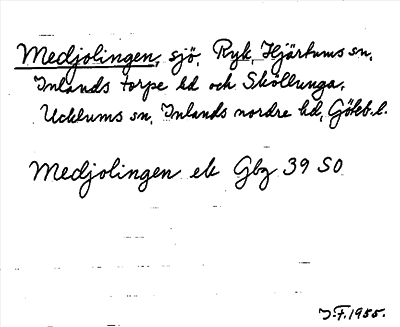 Medjolingen, sjö, Ryk, Hjärtums sn,
Inlands torpe hd och Sköllunga,
Ucklums sn, Inlands nordre hd, Göteb. l.
Medjolingen ek Gbg 39 SO
J.F. 1955.